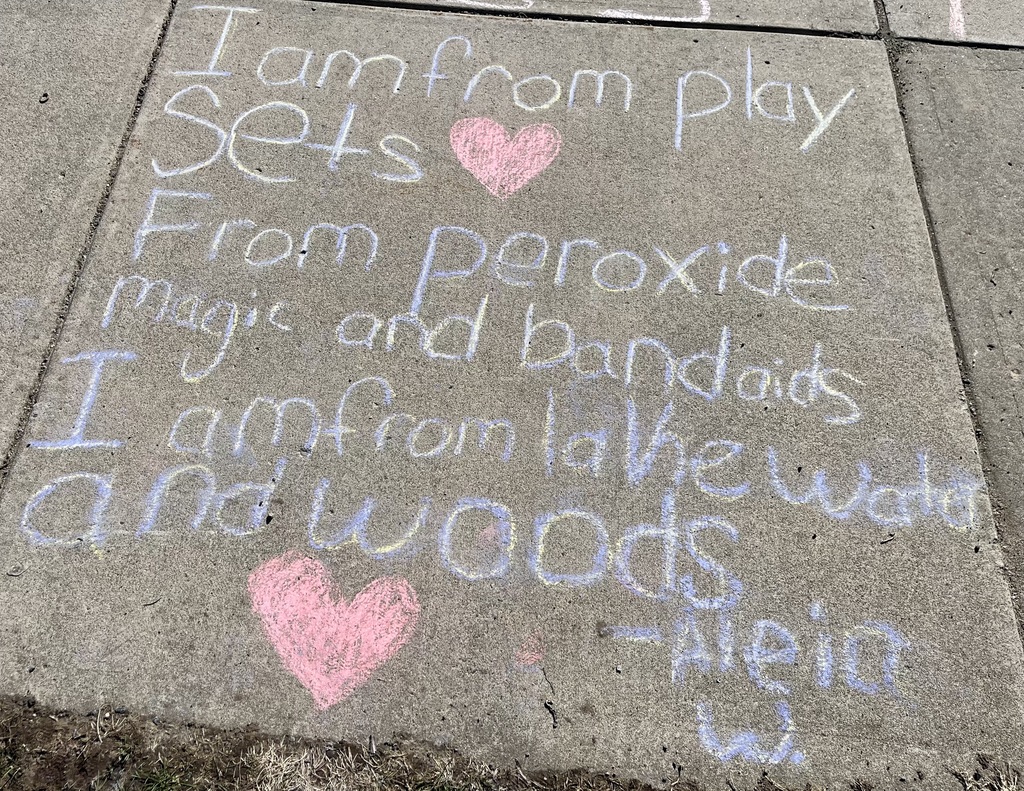 I am from play
Sets
From peroxide
magic and bandaids
I am from lake water
and woods
-Aleia
W.